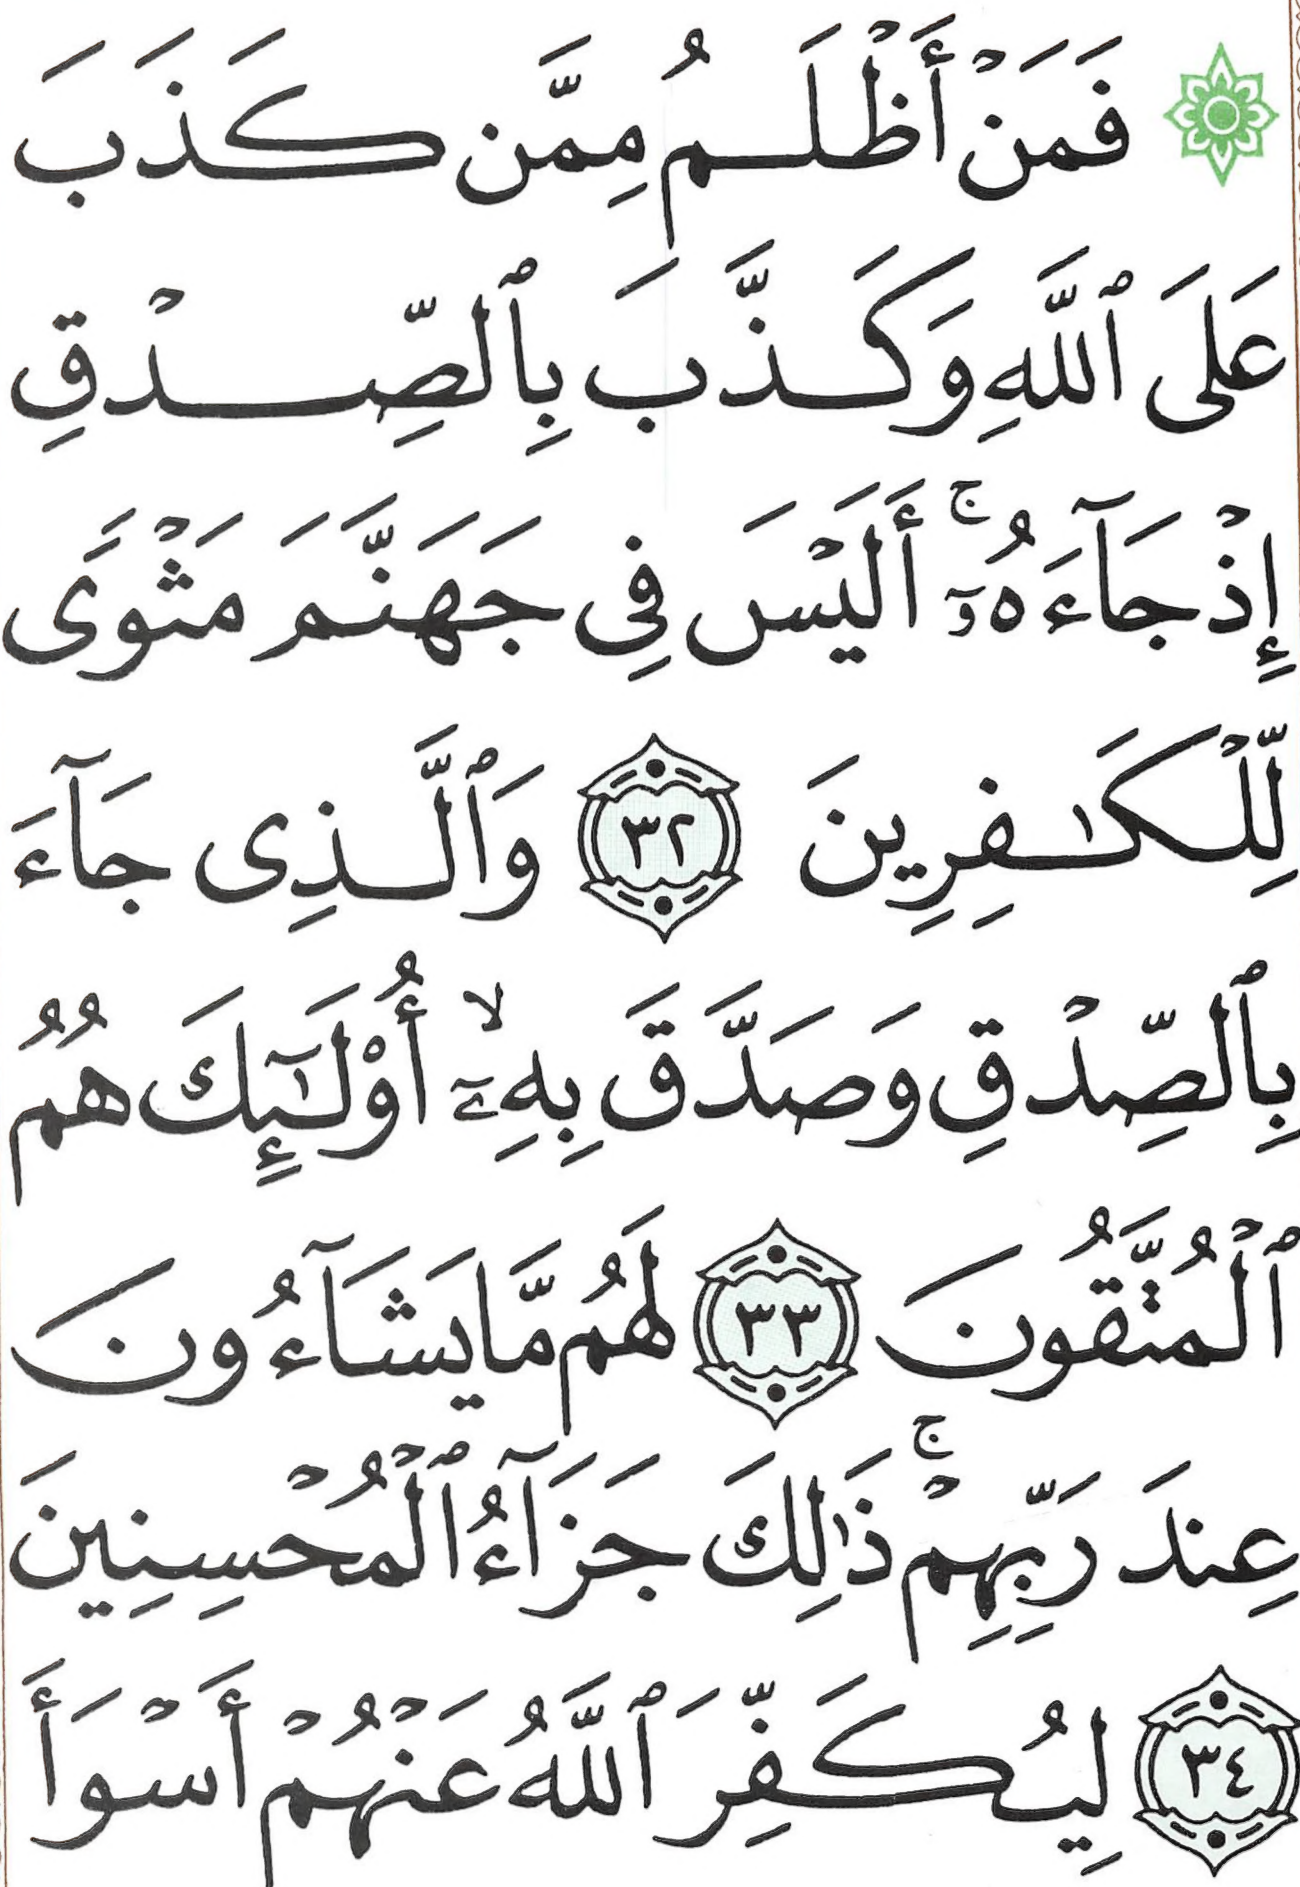 ۞ فَمَنْ أَظْلَمُ مِمَّن كَذَبَ
عَلَى ٱللَّهِ وَكَذَّبَ بِٱلصِّدْقِ
إِذْ جَآءَهُۥٓ ۚ أَلَيْسَ فِى جَهَنَّمَ مَثْوًى
لِّلْكَـٰفِرِينَ ٣٢ وَٱلَّذِى جَآءَ
بِٱلصِّدْقِ وَصَدَّقَ بِهِۦٓ ۙ أُو۟لَـٰٓئِكَ هُمُ
ٱلْمُتَّقُونَ ٣٣ لَهُم مَّا يَشَآءُونَ
عِندَ رَبِّهِمْ ۚ ذَٰلِكَ جَزَآءُ ٱلْمُحْسِنِينَ
٣٤ لِيُكَفِّرَ ٱللَّهُ عَنْهُمْ أَسْوَأَ